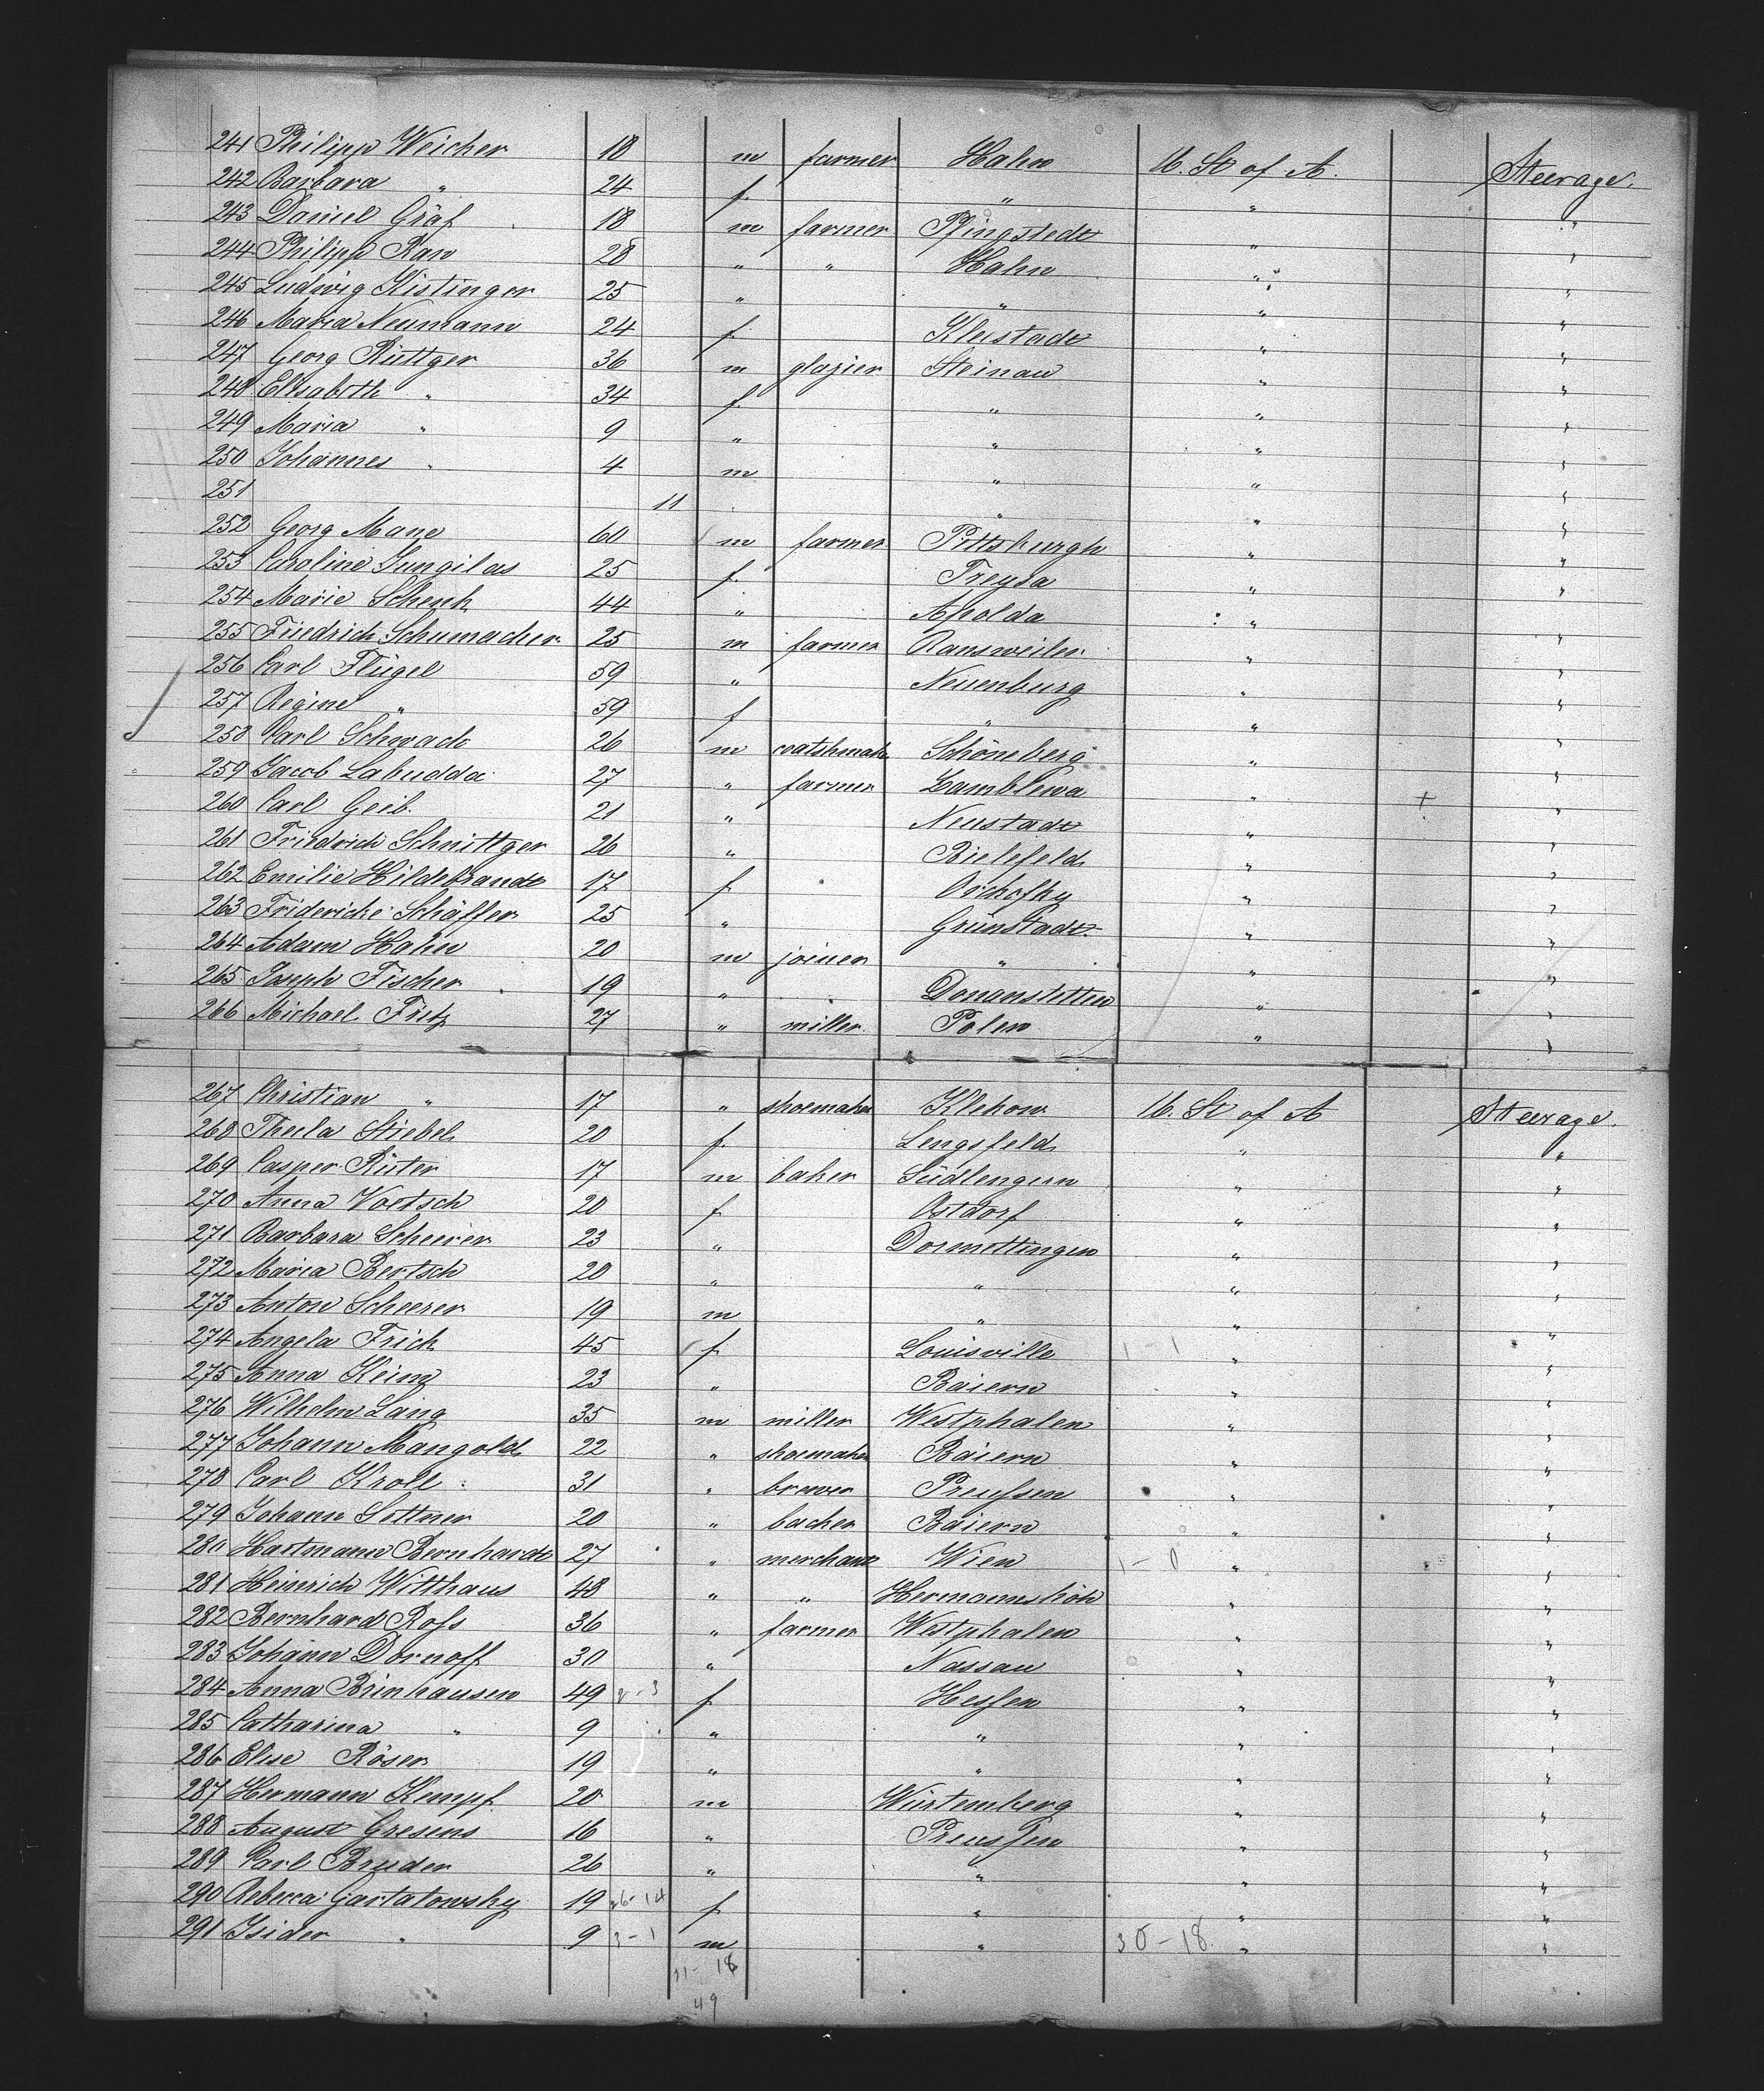 241 Philipp Weicher 18 m farmer Hahn U. St of A. Steerage.
242 Barbara " 24 f. " " "
243 Daniel Gräf 18 m farmer Pfingstedt " "
244 Philipp Rau 28 " " Hahn " "
245 Ludwig Kistinger 25 " " " "
246 Maria Neumann 24 f. Kleestadt " "
247 Georg Rüttger 36 m glazier Steinau " "
248 Elisabeth " 34 f. " " "
249 Maria " 9 " " " "
250 Johannes " 4 m " " "
251 11 " " "
252 Georg Mane 60 m farmer Pittsburgh " "
253 Caroline Jungilas 25 f. Treysa " "
254 Marie Schenk 44 " Apolda " "
255 Friedrich Schumacher 25 m farmer Ransweiler " "
256 Carl Flügel 59 " Neuenburg " "
257 Regine " 59 f " " "
258 Carl Schwach 26 m Schöneberg " "
259 Jacob Labudda 27 " farmer Lamblewa " "
260 Carl Geib. 21 " Neustadt " + "
261 Friedrich Schnittger 26 " Bielefeld " "
262 Emilie Hildebrandt 17 f " "
263 Fridericke Schäffer 25 " Grünstadt " "
264 Adam Hahn 20 m joiner " " "
265 Joseph Fischer 19 " Donanstetten " "
266 Michael Fritz 27 " miller Polen " "
267 Christian " 17 " shoemaker Klekow U. St of A Steerage.
268 Thecla Stiebel 20 f. Lengsfeld " "
269 Casper Rüter 17 m baker Südlengern " "
270 Anna Voetsch 20 f Ostdorf " "
271 Barbara Scherer 23 " Dormettingen " "
272 Maria Bertsch 20 " " " "
273 Anton Scheerer 19 m " " "
274 Angela Frich 45 f Louisville 1 - 1 " "
275 Anna Keinz 23 " Baiern " "
276 Wilhelm Lang 35 m miller Westphalen " "
277 Johann Mangold 22 " shoemaker Baiern " "
278 Carl Kroll 31 " brewer Preussen " "
279 Johann Söttner 20 " bacher Baiern " "
280 Hartmann Bernhardt 27 " merchant Wien 1 - 0 " "
281 Heinrich Witthaus 48 " " Hermannshöh " "
282 Bernhard Ross 36 " farmer Westphalen " "
283 Johann Dornoff 30 " Nassau " "
284 Anna Brinhausen 49 2 - 3 f Hessen " "
285 Catharina " 9 " " " "
286 Elise Röser 19 " " " "
287 Hermann Kempf 20 m Würtemberg " "
288 August Gresens 16 " Preussen " "
289 Carl Bruder 26 " " " "
290 Rebecca Gartatowsky 19 26 - 14 f " " "
291 Isider " 9 3 - 1 m " 30 - 18 " "
11 - 18
49